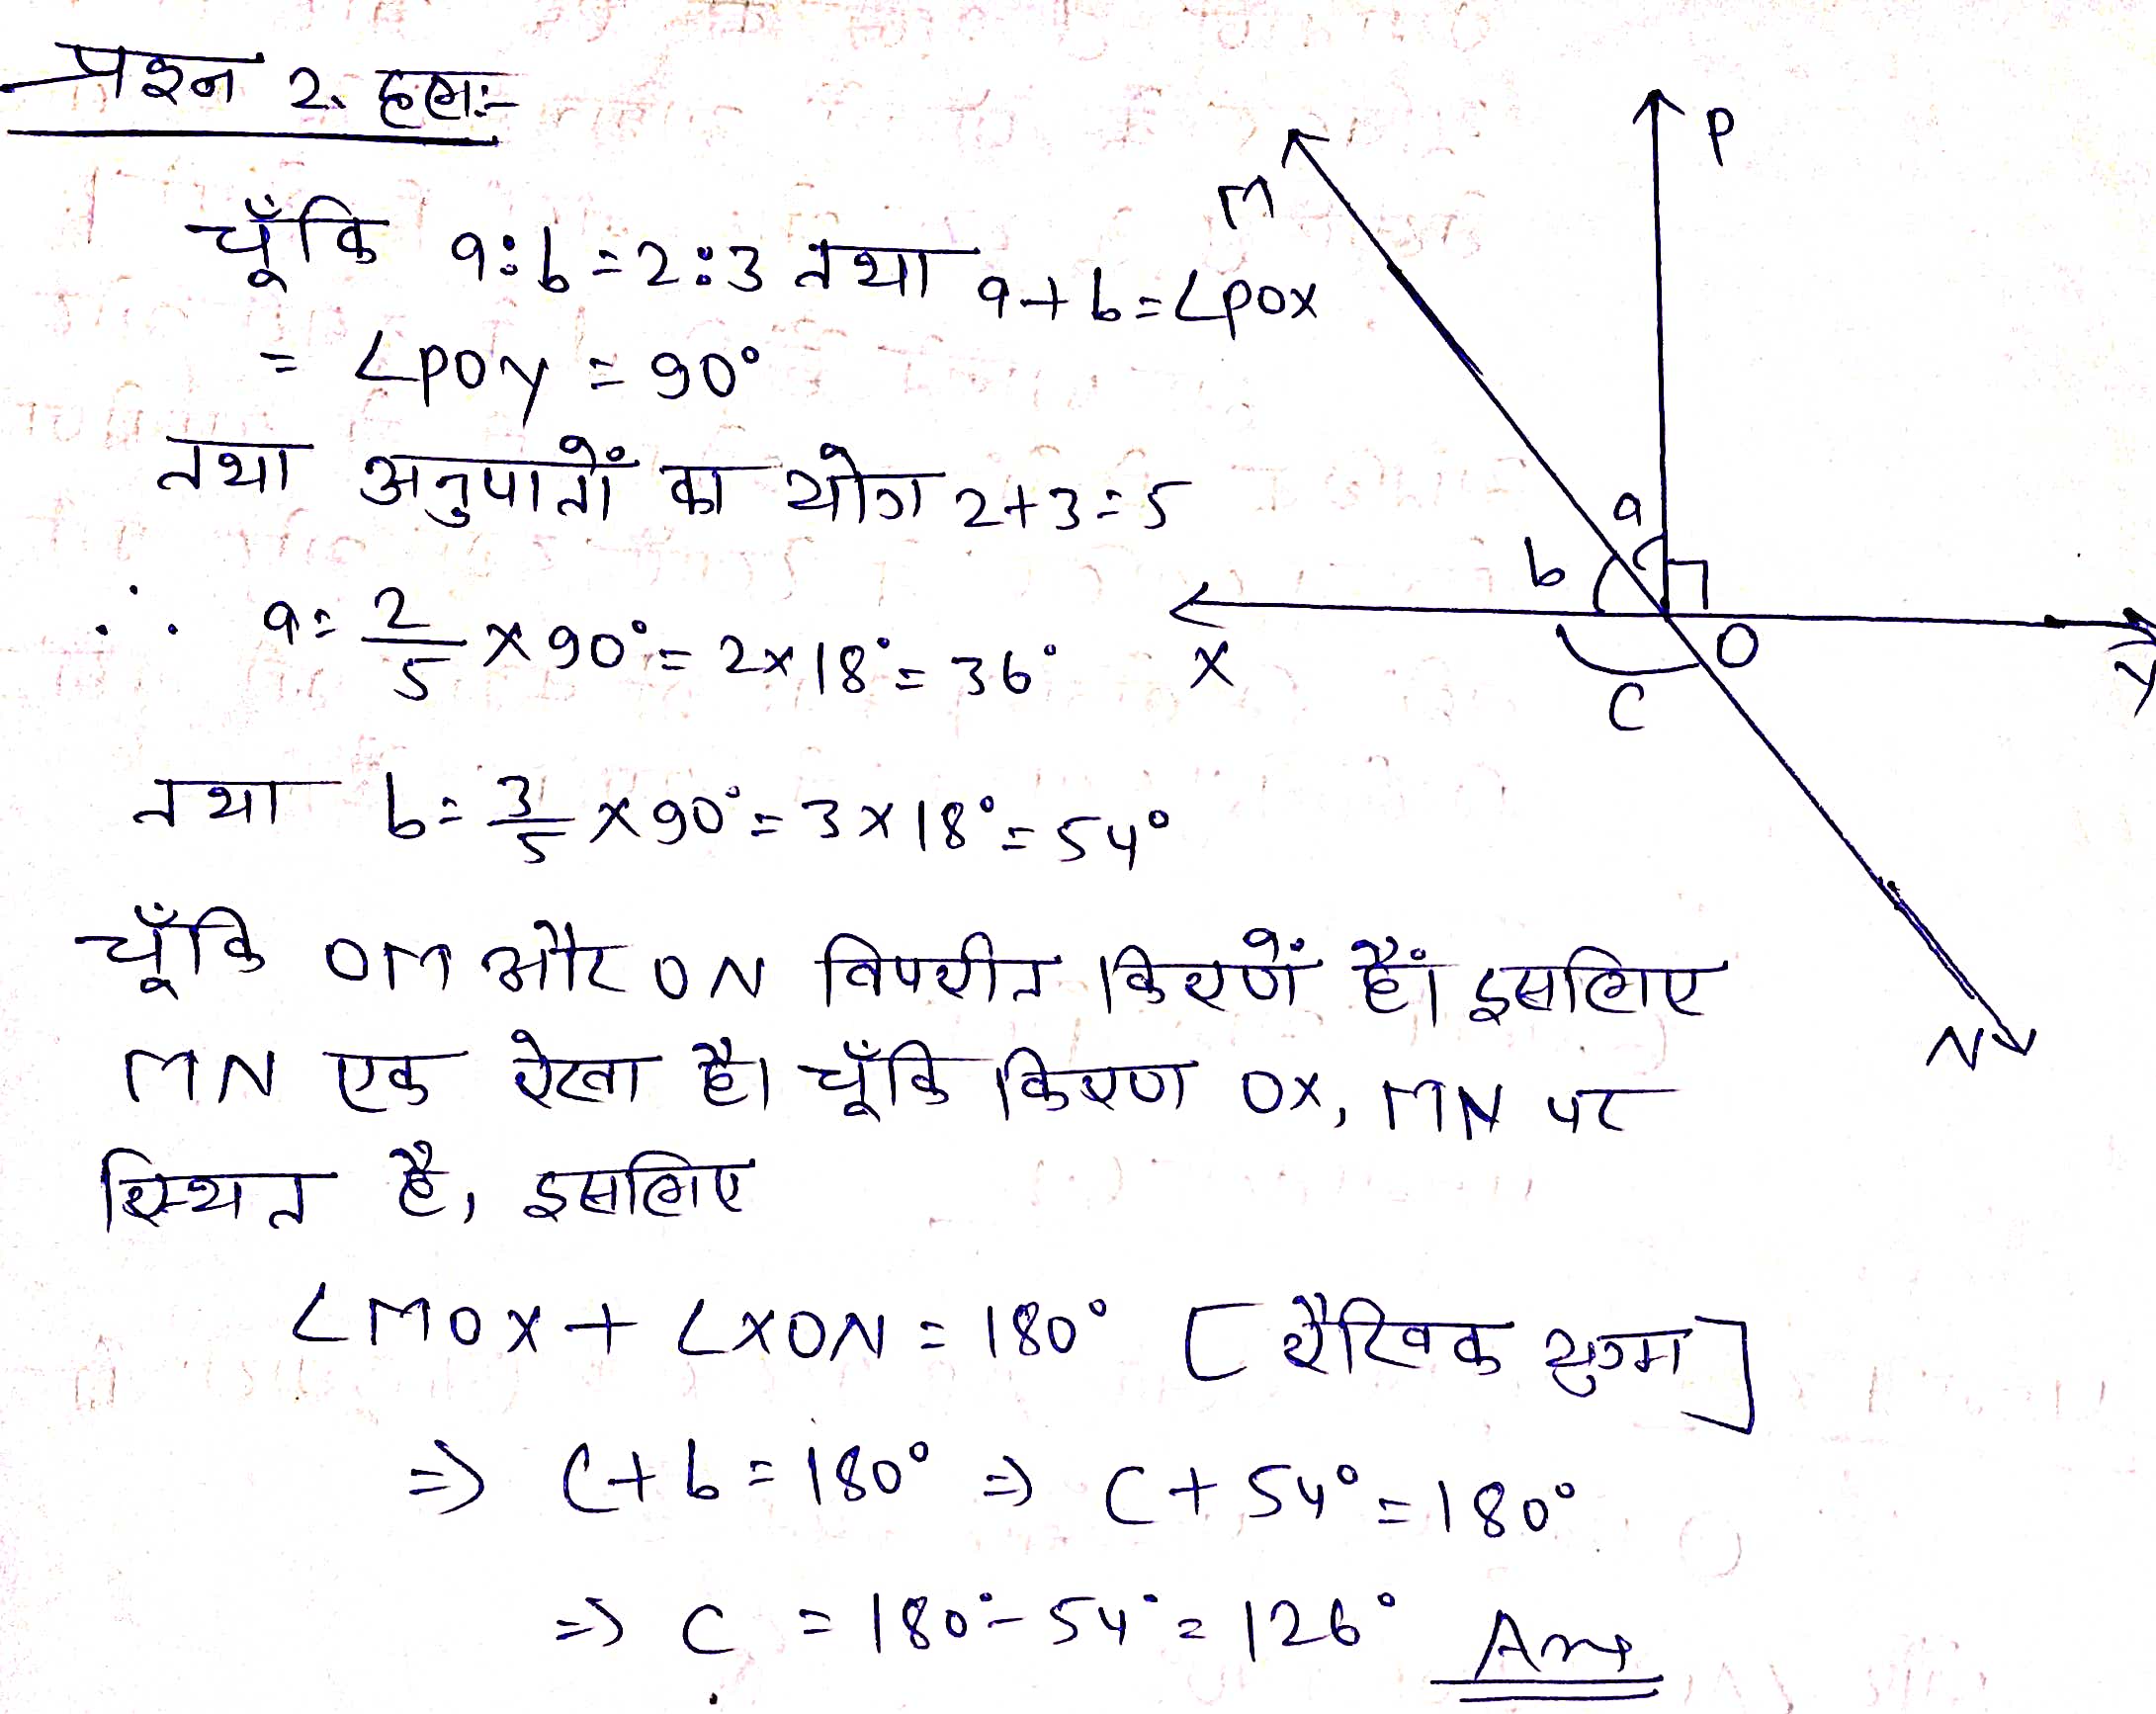 प्रश्न 2. हलः-
चूँकि a:b=2:3 तथा a+b=∠POX
= ∠POY = 90°
तथा अनुपातों का योग 2+3=5
∴ a= 2/5 ×90°= 2×18°= 36°
तथा b= 3/5 ×90°= 3×18°= 54°
चूँकि OM और ON विपरीत किरणें हैं। इसलिए
MN एक रेखा है। चूँकि किरण OX, MN पर
स्थित है, इसलिए
∠MOX + ∠XON = 180° [ रैखिक युग्म ]
⇒ C+b=180° ⇒ C+54°=180°
⇒ C = 180°-54°= 126° Ans
P
M
a
b
O
X
Y
C
N